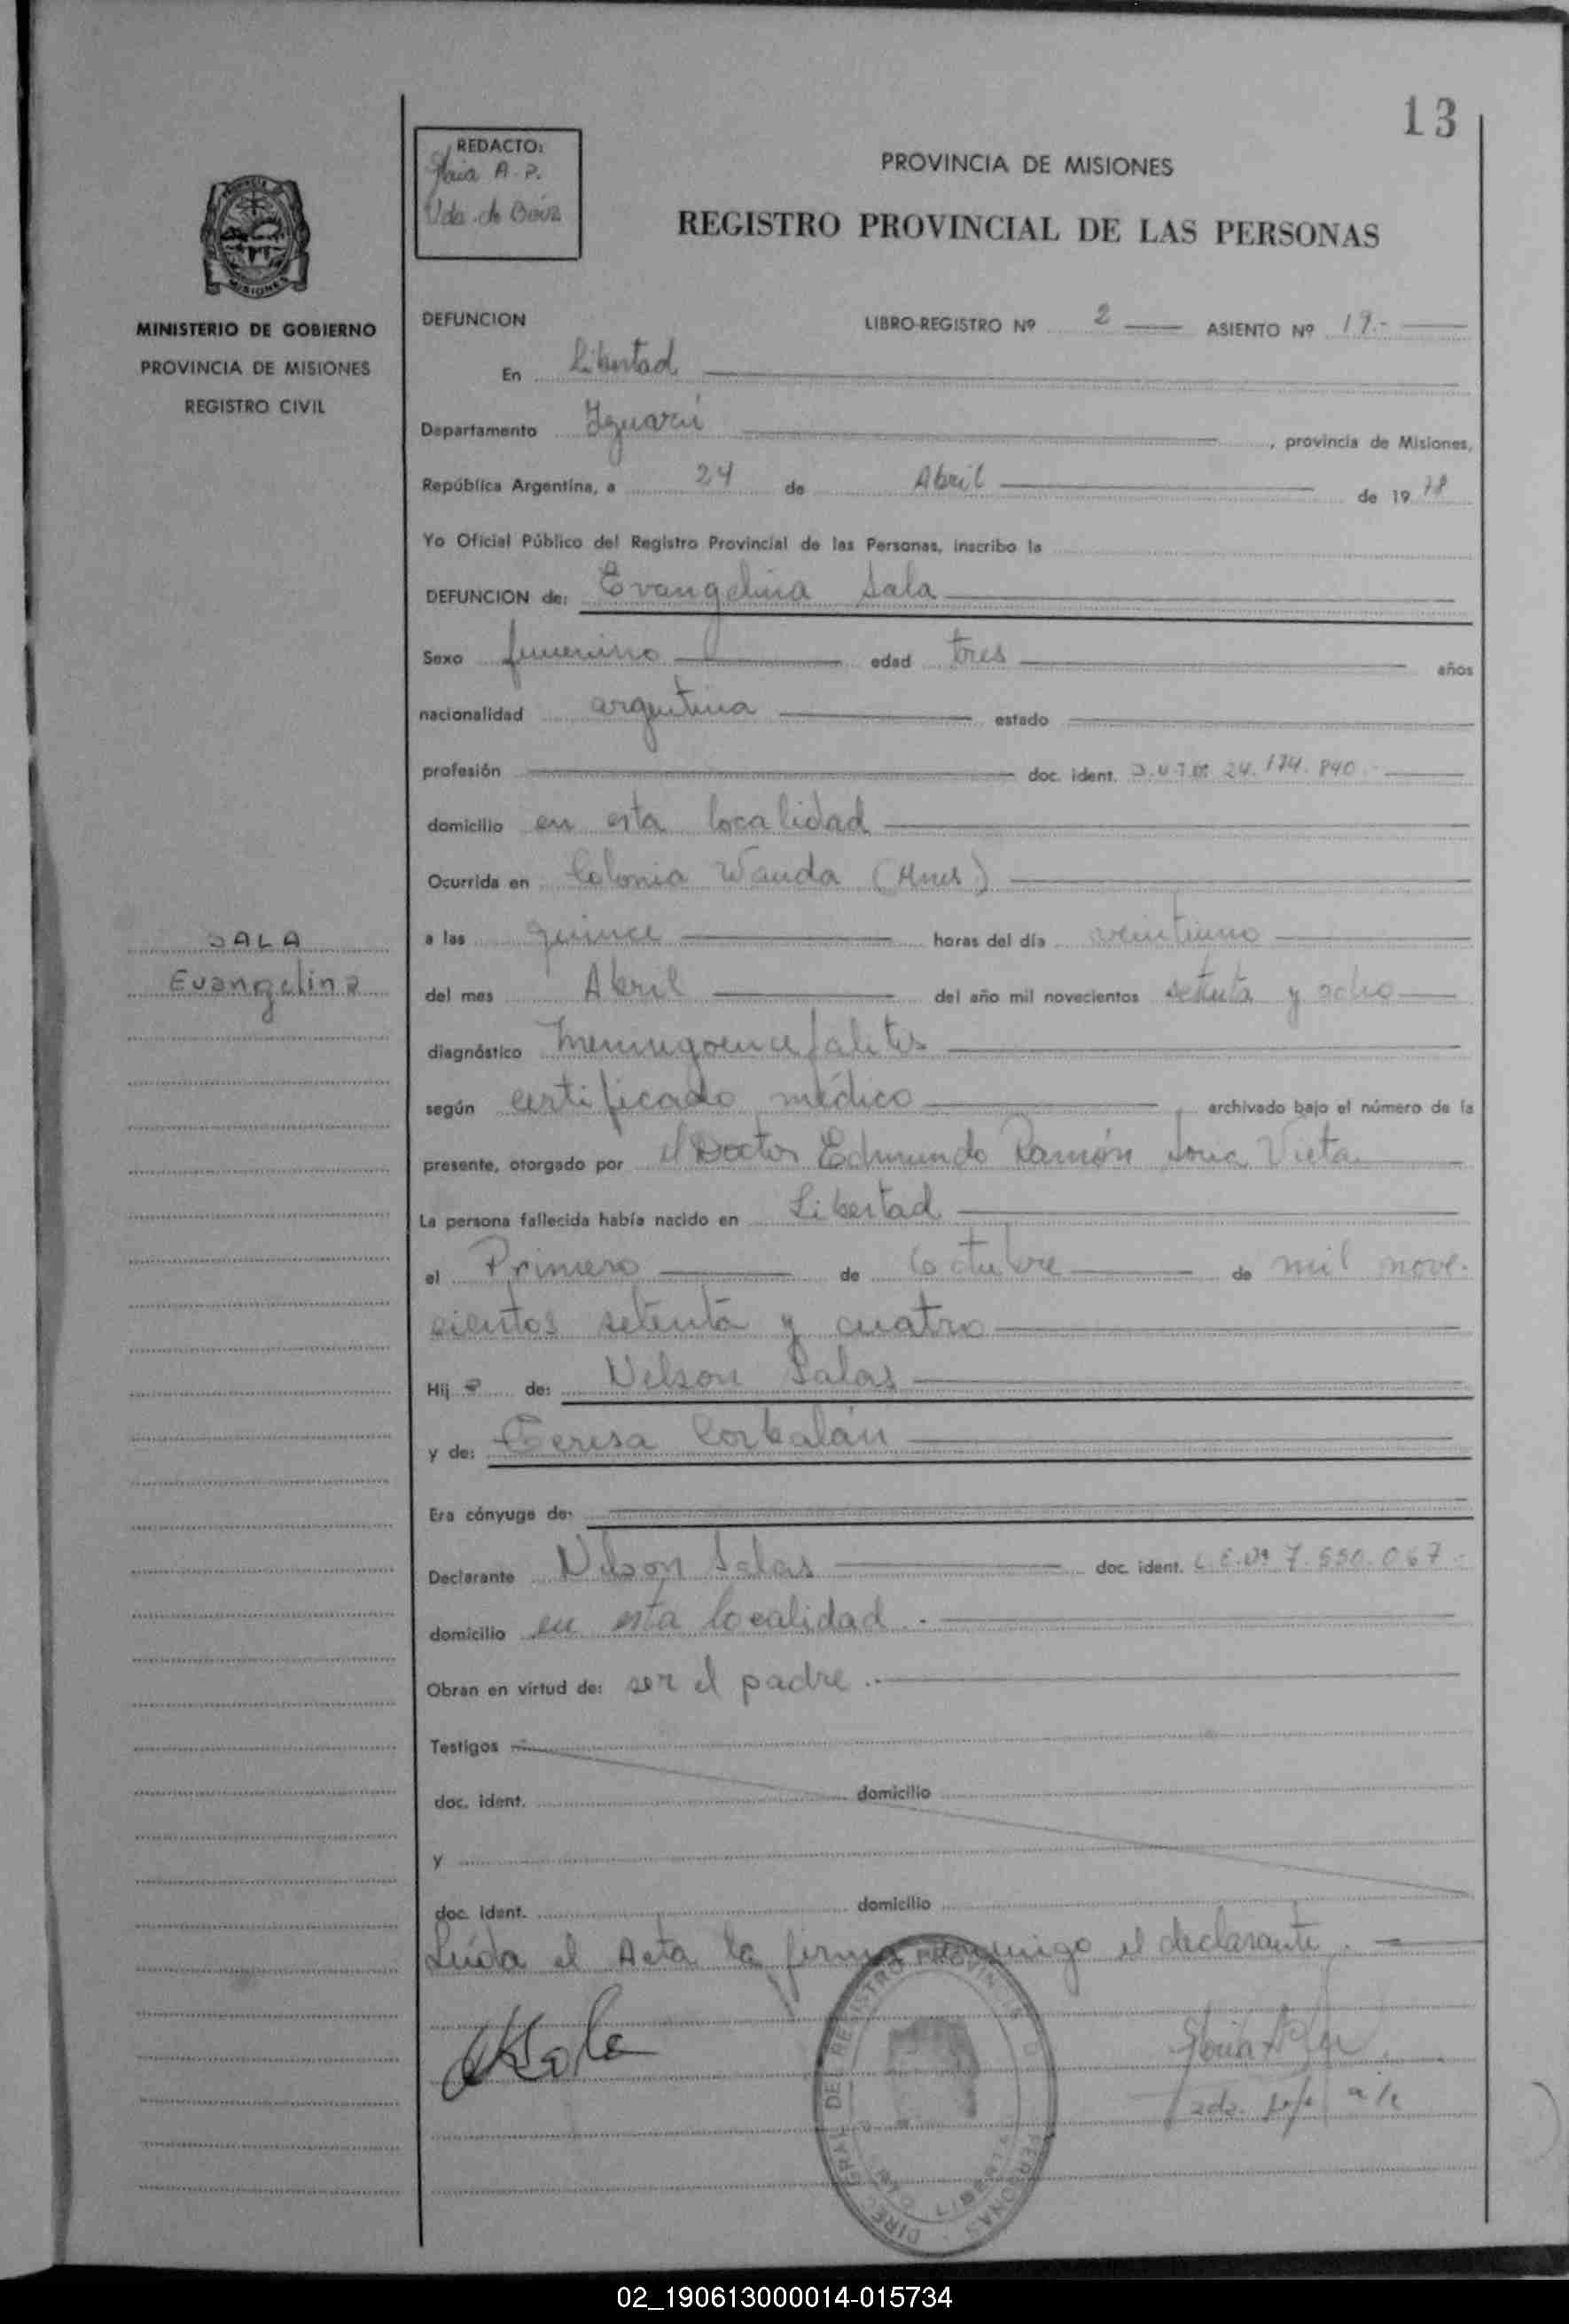 13
REDACTO:
A. P.
Vda. de
PROVINCIA DE MISIONES
REGISTRO PROVINCIAL DE LAS PERSONAS
MINISTERIO DE GOBIERNO
PROVINCIA DE MISIONES
REGISTRO CIVIL
DEFUNCION LIBRO-REGISTRO Nº 2 ASIENTO Nº 19.-
En Libertad
Departamento Iguazú, provincia de Misiones,
República Argentina, a 24 de Abril de 1978
Yo Oficial Público del Registro Provincial de las Personas, inscribo la
DEFUNCION de: Evangelina Sala
Sexo femenino edad tres años
nacionalidad argentina estado
profesión doc. ident. 24.174.840.-
domicilio en esta localidad
Ocurrida en Colonia Wanda (Mnes)
SALA
Evangelina
a las quince horas del día veintiuno
del mes Abril del año mil novecientos setenta y ocho
diagnóstico meningoencefalitis
según certificado médico archivado bajo el número de la
presente, otorgado por el Doctor Edmundo Ramón Soria Vieta
La persona fallecida había nacido en Libertad
el Primero de Octubre de mil nove-
cientos setenta y cuatro
Hija de: Nelson Salas
y de: Teresa Corbalán
Era cónyuge de:
Declarante Nelson Salas doc. ident. L.E.Nº 7.550.067.-
domicilio en esta localidad.-
Obran en virtud de: ser el padre.-
Testigos
doc. ident. domicilio
y
doc. ident. domicilio
Leída el Acta la firma conmigo el declarante.
DIREC GRAL DEL REGISTRO PROVINCIAL DE LAS PERSONAS
LIBERTAD
02_190613000014-015734